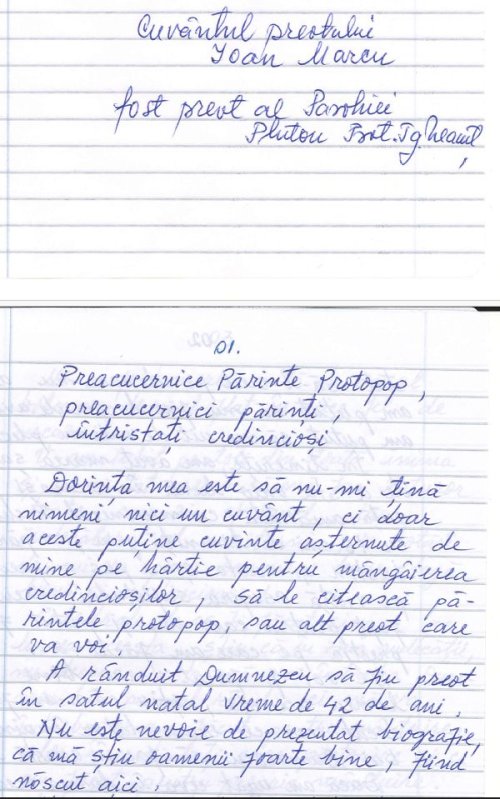 Cuvântul preotului
Ioan Marcu
fost preot al Parohiei
Pluton Prot. Tg. Neamț,
01.
Preacucernice Părinte Protopop,
preacucernici părinți,
întristați credincioși
Dorința mea este să nu-mi țină
nimeni nici un cuvânt, ci doar
aceste puține cuvinte așternute de
mine pe hârtie pentru mângâierea
credincioșilor, să le citească pă-
rintele protopop, sau alt preot care
va voi.
A rânduit Dumnezeu să fiu preot
în satul natal vreme de 42 de ani.
Nu este nevoie de prezentat biografie,
că mă știu oamenii foarte bine, fiind
născut aici.